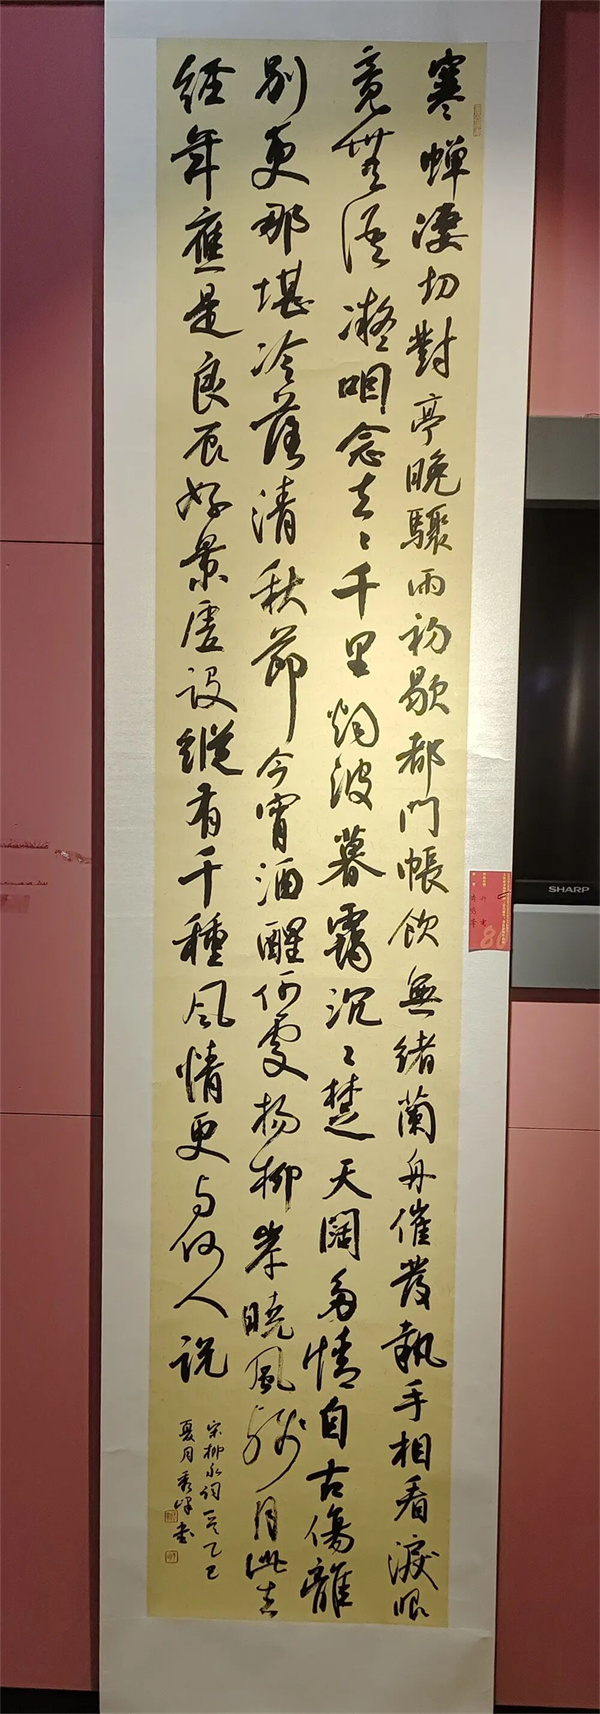 寒蟬淒切對亭晚驟雨初歇都門帳飲無緒蘭舟催發執手相看淚眼
竟無語凝咽念去々千里烟波暮靄沉々楚天闊多情自古傷離
別更那堪冷落清秋節今宵酒醒何處楊柳岸曉風殘月此去
經年應是良辰好景虛設縱有千種風情更与何人説
宋柳永詞一首乙巳
夏月秀峰書
SHARP
8